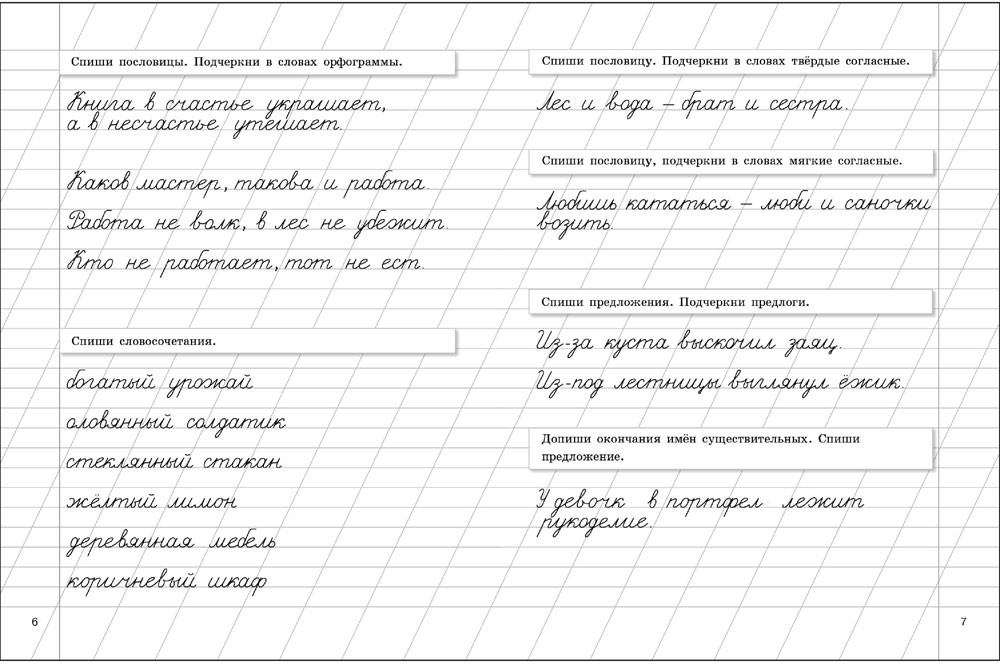 Спиши пословицы. Подчеркни в словах орфограммы.
Книга в счастье украшает,
а в несчастье утешает.
Каков мастер, такова и работа.
Работа не волк, в лес не убежит.
Кто не работает, тот не ест.
Спиши словосочетания.
богатый урожай
оловянный солдатик
стеклянный стакан
жёлтый лимон
деревянная мебель
коричневый шкаф
6
Спиши пословицу. Подчеркни в словах твёрдые согласные.
Лес и вода – брат и сестра.
Спиши пословицу, подчеркни в словах мягкие согласные.
Любишь кататься – люби и саночки
возить.
Спиши предложения. Подчеркни предлоги.
Из-за куста выскочил заяц.
Из-под лестницы выглянул ёжик.
Допиши окончания имён существительных. Спиши
предложение.
У девочк в портфел лежит
рукоделие.
7